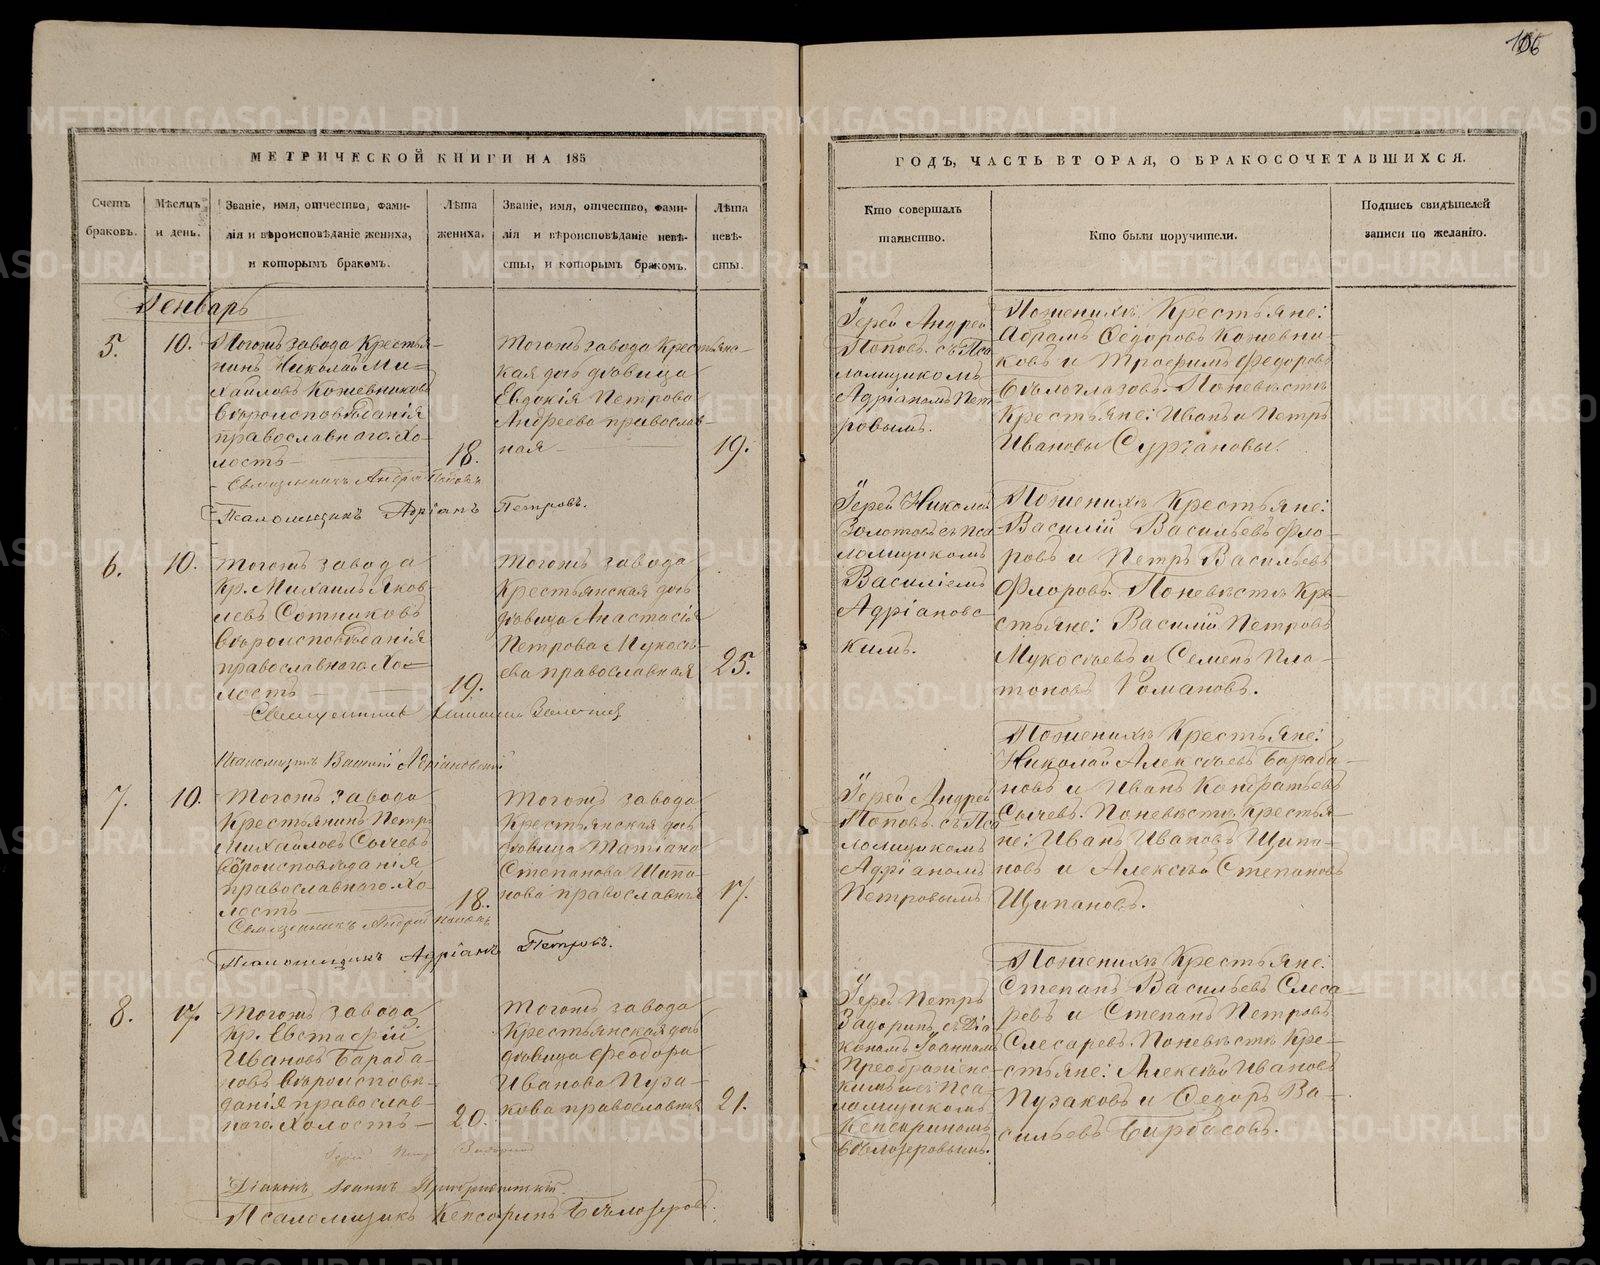 106
МЕТРИЧЕСКОЙ КНИГИ НА 185
ГОДЪ, ЧАСТЬ ВТОРАЯ, О БРАКОСОЧЕТАВШИХСЯ.
Счетъ
браковъ.
Мѣсяцъ
и день.
Званіе, имя, отчество, фами-
лія и вѣроисповѣданіе жениха,
и которымъ бракомъ.
Лѣта
жениха.
Званіе, имя, отчество, фами-
лія и вѣроисповѣданіе невѣ-
сты, и которымъ бракомъ.
Лѣта
невѣ-
сты.
Кто совершалъ
таинство.
Кто были поручители.
Подпись свидѣтелей
записи по желанію.
Генварь
5.
10.
Тогожъ завода Крестья-
нинъ Николай Ми-
хайловъ Кожевниковъ
вѣроисповѣданія
православнаго. Хо-
лостъ
18.
Тогожъ завода Крестьянс-
кая дочь дѣвица
Евдокія Петрова
Андреева православ-
ная
19.
Іерей Андрей
Поповъ съ Пса
ломщикомъ
Адріаномъ Пет-
ровымъ.
По женихѣ Крестьяне:
Абрамъ Ѳедоровъ Кожевни-
ковъ и Трофимъ Федоровъ
Бѣлоглазовъ. По невѣстѣ
Крестьяне: Иванъ и Петръ
Ивановы Сургановы.
Священникъ Андрей Поповъ
Псаломщикъ Адріанъ Петровъ.
6.
10.
Тогожъ завода
Кр. Михаилъ Яков-
левъ Сотниковъ
вѣроисповѣданія
православнаго. Хо-
лостъ
19.
Тогожъ завода
Крестьянская дочь
дѣвица Анастасія
Петрова Мукосѣ-
ева православная
25.
Іерей Николай
Золотовъ съ Пса
ломщикомъ
Василіемъ
Адріановс-
кимъ.
По женихѣ Крестьяне:
Василій Васильевъ Фло-
ровъ и Петръ Васильевъ
Флоровъ. По невѣстѣ Кре-
стьяне: Василій Петровъ
Мукосѣевъ и Семенъ Пла-
тоновъ Романовъ.
Священникъ Николай Золотовъ
Псаломщикъ Василій Адріановскій
7.
10.
Тогожъ завода
Крестьянинъ Петръ
Михайловъ Сычевъ
вѣроисповѣданія
православнаго. Хо-
лостъ
18.
Тогожъ завода
Крестьянская дочь
дѣвица Татіана
Степанова Щипа-
нова православная
17.
Іерей Андрей
Поповъ съ Пса
ломщикомъ
Адріаномъ
Петровымъ
По женихѣ Крестьяне:
Николай Алексѣевъ Бараба-
новъ и Иванъ Кондратьевъ
Сычевъ. По невѣстѣ Крестья-
не: Иванъ Ивановъ Щипа-
новъ и Алексѣй Степановъ
Щипановъ.
Священникъ Андрей Поповъ
Псаломщикъ Адріанъ Петровъ.
8.
17.
Тогожъ завода
Кр. Евстафій
Ивановъ Бараба-
новъ вѣроисповѣ-
данія православ-
наго. Холостъ
20.
Тогожъ завода
Крестьянская дочь
дѣвица Феодора
Иванова Пуза-
кова православная
21.
Іерей Петръ
Задоринъ съ Діа
кономъ Іоанномъ
Преображенс-
кимъ и съ Пса-
ломщикомъ
Кенсориномъ
Бѣлозеровымъ.
По женихѣ Крестьяне:
Степанъ Васильевъ Слеса-
ревъ и Степанъ Петровъ
Слесаревъ. По невѣстѣ Кре-
стьяне: Алексѣй Ивановъ
Пузаковъ и Ѳедоръ Ва-
сильевъ Барбасовъ.
Іерей Петръ Задоринъ
Діаконъ Іоаннъ Преображенскій.
Псаломщикъ Кенсоринъ Бѣлозеровъ.
METRIKI.GASO-URAL.RU